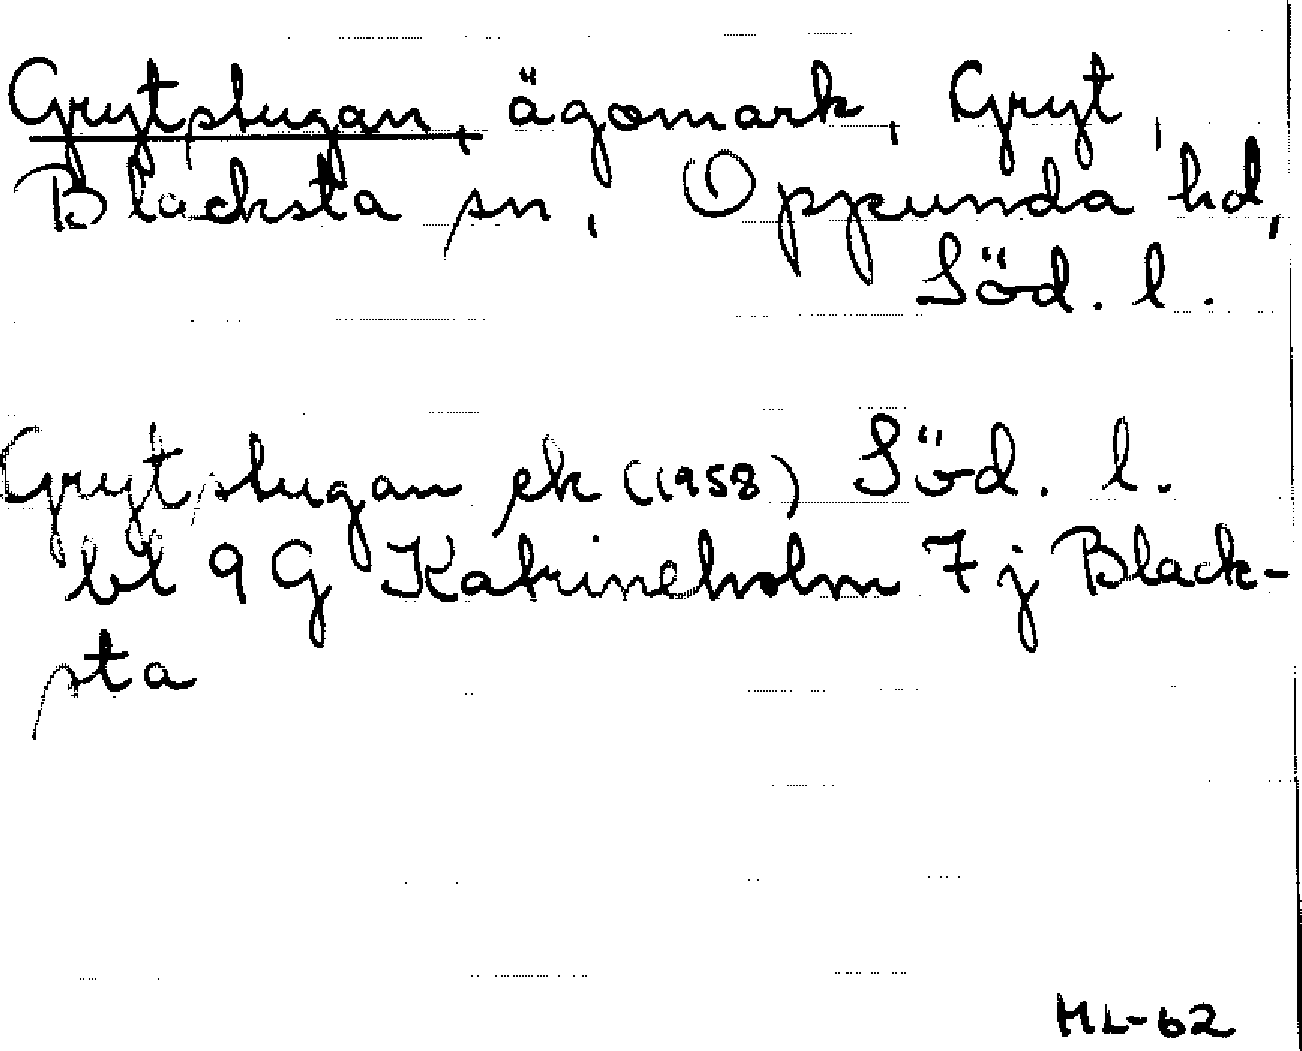 Grytstugan, ägomark, Gryt,
Blacksta sn, Oppunda hd,
Söd. l.
Grytstugan ek (1958) Söd. l.
bl 9G Katrineholm 7j Black-
sta
ML-62